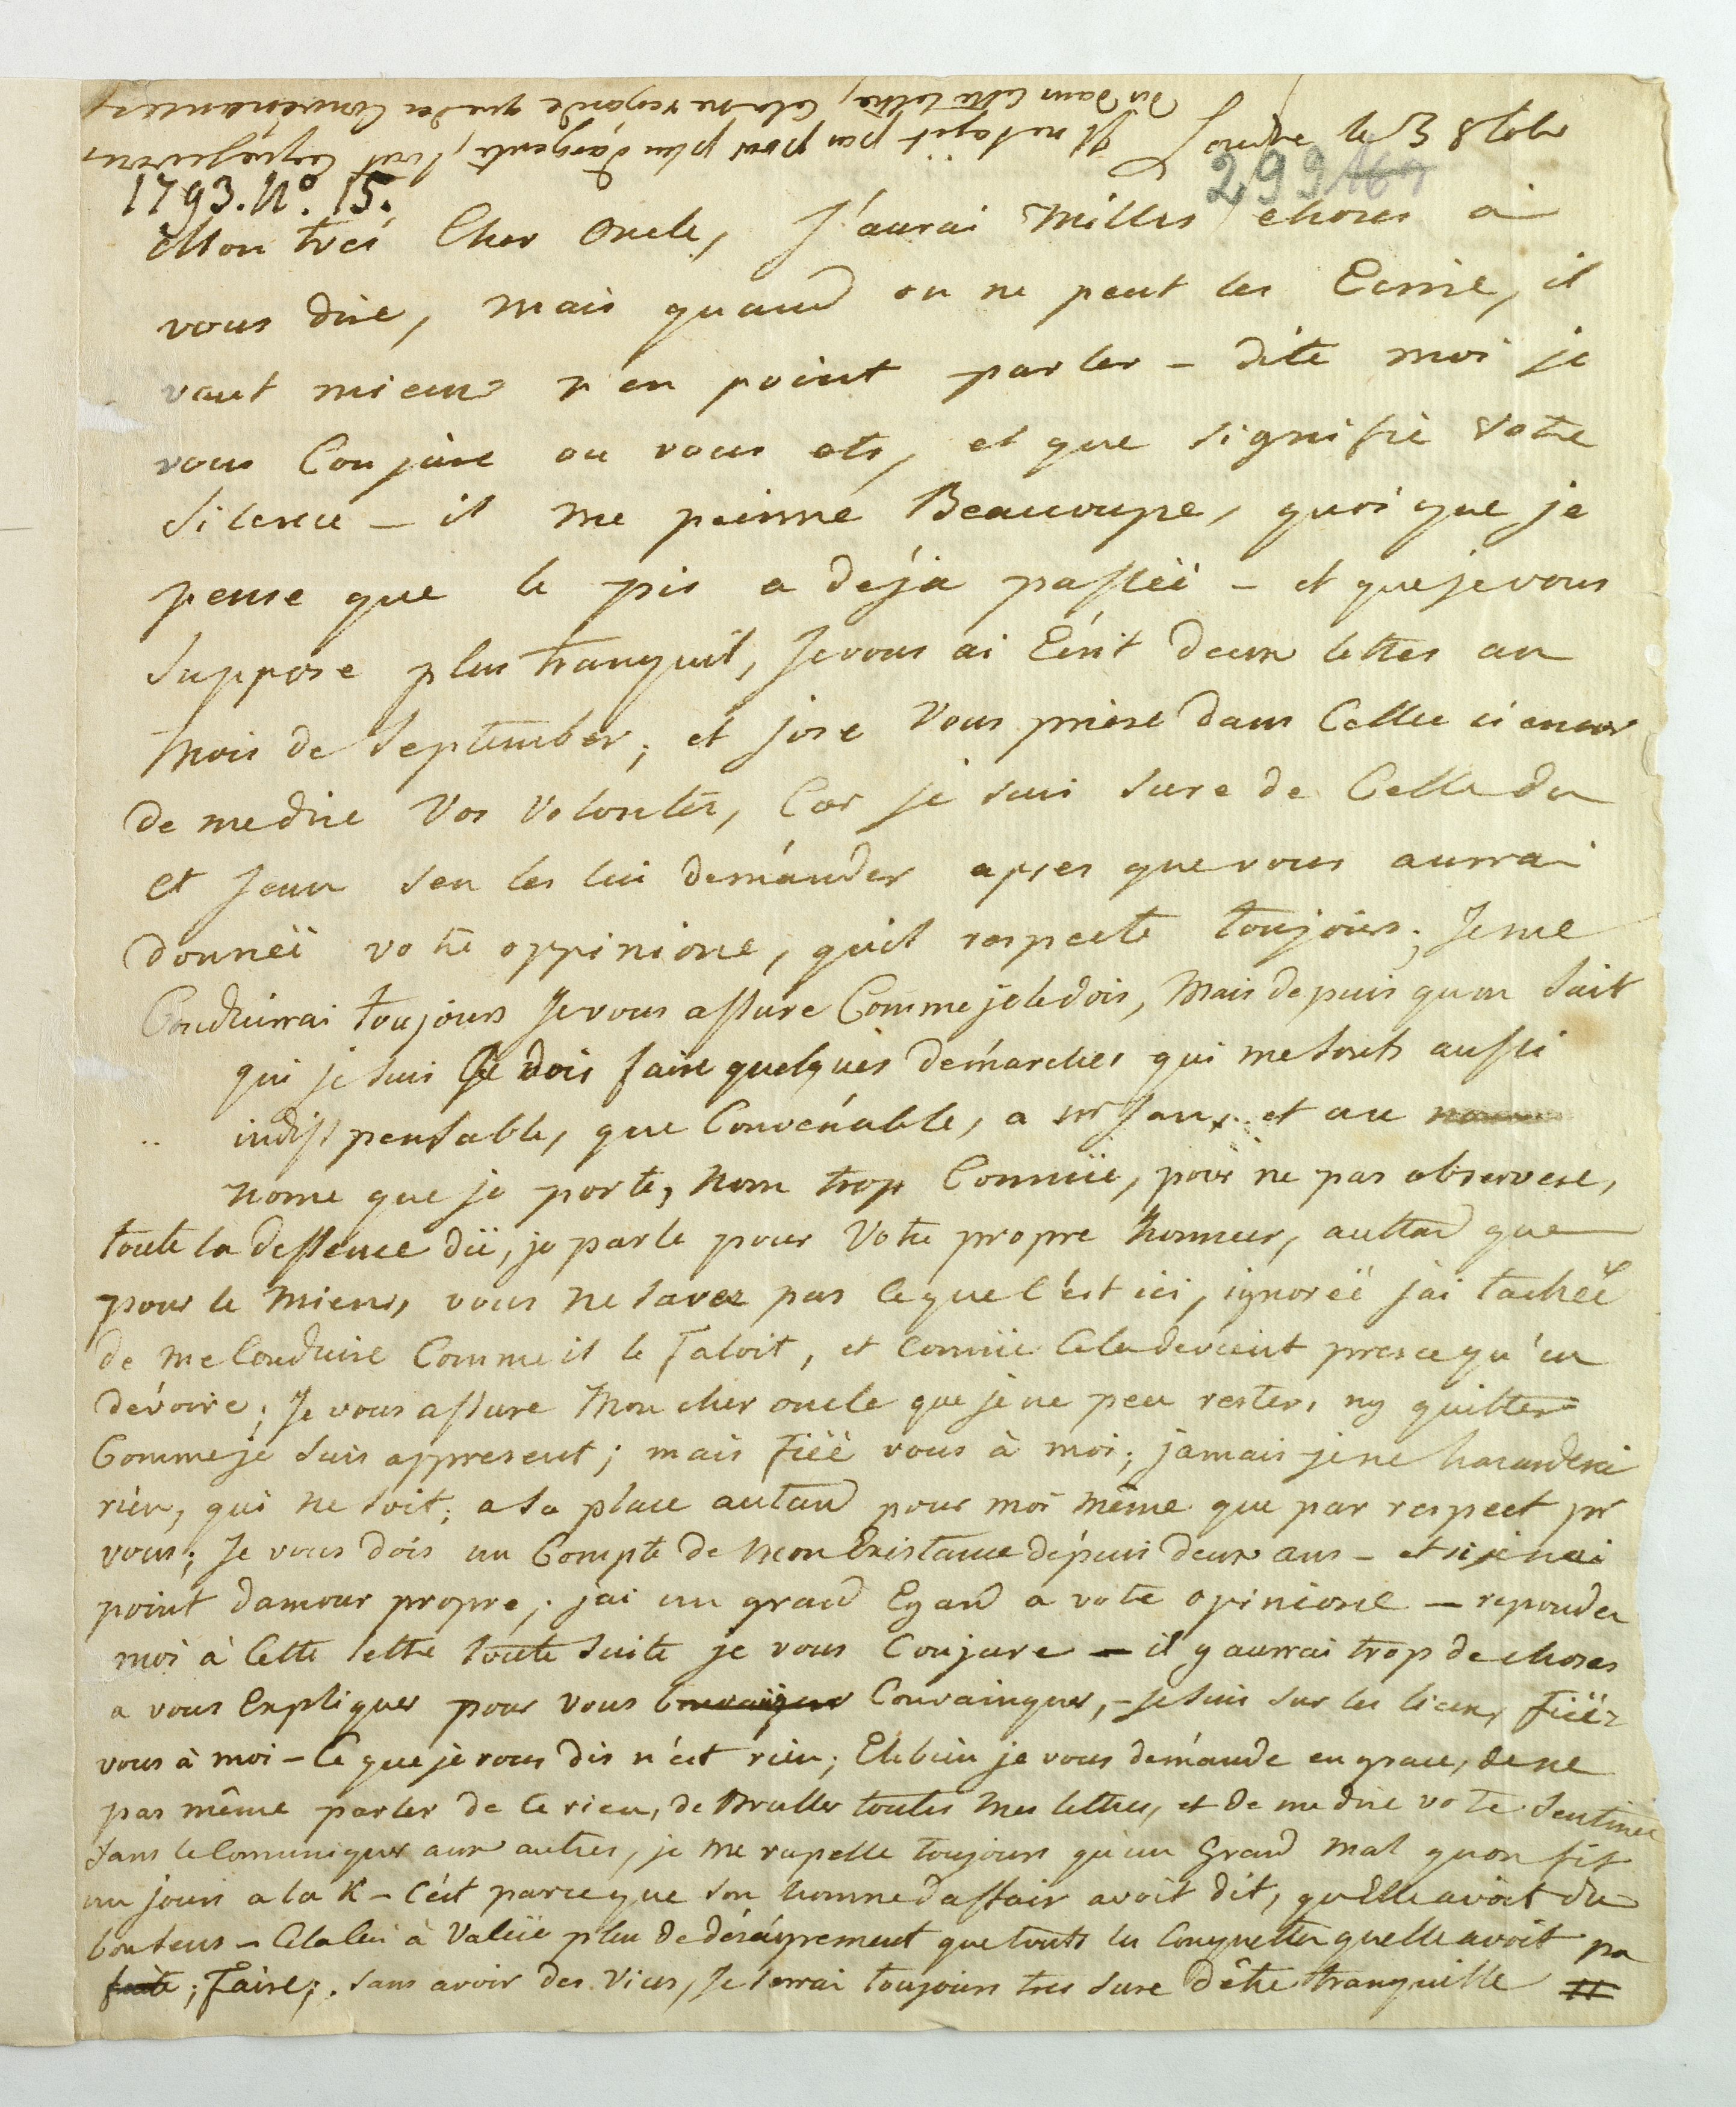 Londre le 3 8tobr
299
1793. No. 15.
Il ne sagit pas pour plus d'argents, tout ce que je vous
dis dans cette lettre, cela ne regarde que des Convenances
Mon tres Cher Oncle, J'aurai Milles choses à
vous dire, mais quand on ne peut les Ecrire, il
vaut mieux n'en point parler - dite moi je
vous Conjure ou vous ets, et que signifie votre
Silence - il me peinne Beaucoupe, quoi que je
pense que le pis a déja passëé - et que je vous
suppose plus tranquil, Je vous ai Ecrit deux lettes au
Mois de September, et jose Vous priere dans Cellee ci encor
de me dire Vos Volontés, Car je suis sure de Celle du
et Jeun sen les lui demánder apres que vous aurrai
donnëé votre oppinione, quil respecte toujours; Je me
Conduirrai toujours Je vous assure Comme je le dois, Mais depuis quon sait
qui je suis Je dois faire quelques demárches qui me sonts aussi
indisspensable, que Convenable, a mr Jan, et au
nome que je porte, nom trop Connüe, pour ne pas observere,
toute la dessence dü, je parle pour Votre propre honneur, auttand que
pour le Miens, vous ne savez pas ceque c'est ici, ignorëé j'ai tachëé
de me Conduire Comme il le Faloit, et Connüe Cela devient presce qu'un
dévoire; Je vous assure Mon cher oncle que je ne peu rester, ny quitter
Comme je suis appresent; mais Fiëé vous à moi; jamais je ne hazarderai
rien, qui ne soit; a sa place autand pour moi même que par respect pr
vous; Je vous dois un Compte de Mon Existance dépuis deux ans - et si je n'ai
point d'amour propre; j'ai un grand Egard a vote opinione - reponder
moi à Cette lettre toute suite je vous Conjure - il y aurrai trop de choses
a vous Expliquer pour vous Convainquer, - Je suis sur les lieux, Fiëéz
vous à moi - Ce que je vous dis n'est rien; Eh bien je vous demánde en grace, de ne
pas même parler de Ce rien, de Bruller toutes Mes lettres, et de me dire vote Sentimen
sans le Comuniquer aux autres, je me rapelle toujours qu'un Grand mal quon fit
un jours a la K - C'est parce que son homme d'affair avoit dit, qu'Elle avoit du
bonsens - Cela lui à Valüe plus de désagrement que touts les Conquettes quelle avoit pu
faite; Faire; sans avoir des Vices, Je serrai toujours tres sure d'être tranquille